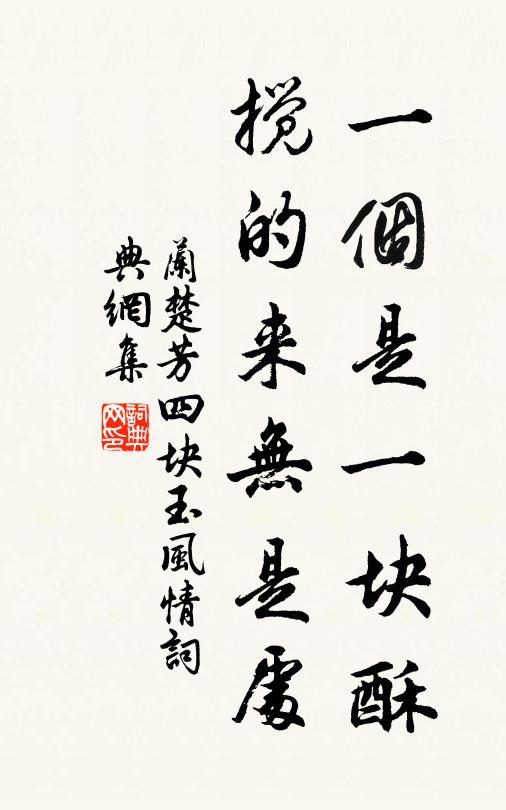 一個是一块酥
搅的来無是處
蘭楚芳四块玉風情詞
典網集
詞典
网印